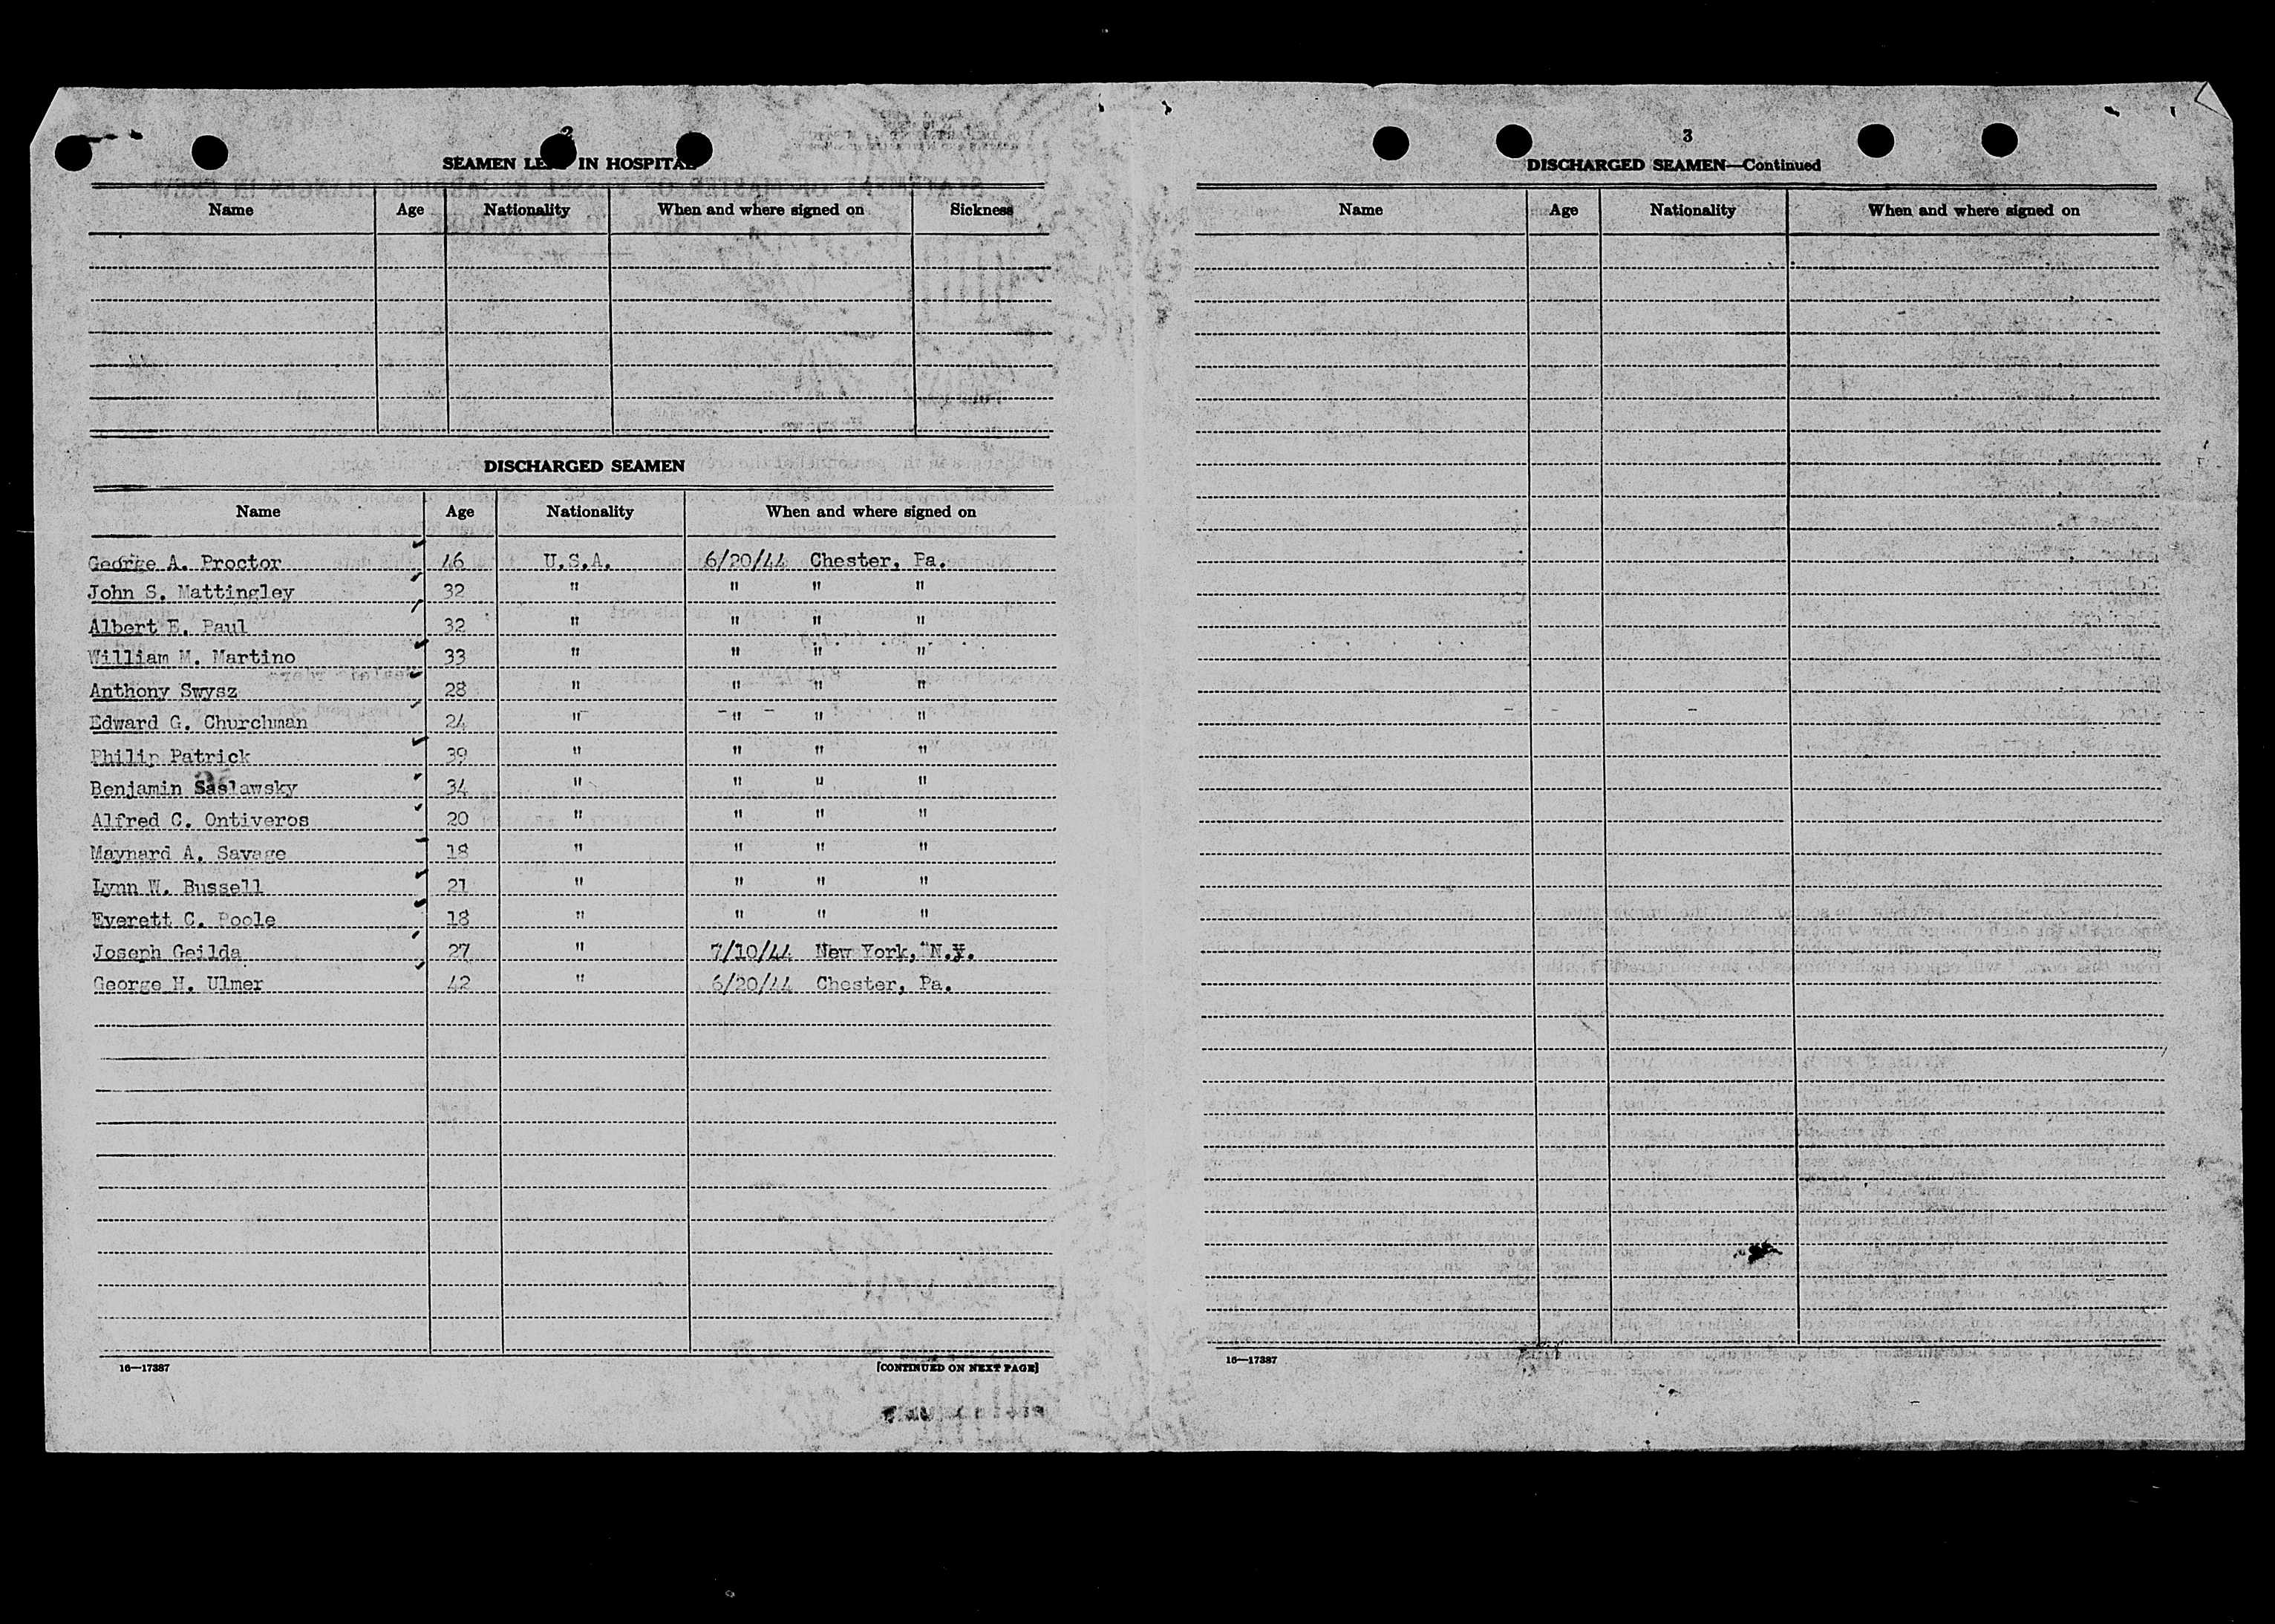 2
SEAMEN LEFT IN HOSPITAL
Name Age Nationality When and where signed on Sickness
DISCHARGED SEAMEN
Name Age Nationality When and where signed on
George A. Proctor 46 U.S.A. 6/20/44 Chester, Pa.
John S. Mattingley 32 " " " "
Albert E. Paul 32 " " " "
William M. Martino 33 " " " "
Anthony Swysz 28 " " " "
Edward G. Churchman 24 " " " "
Philip Patrick 39 " " " "
Benjamin Saslawsky 34 " " " "
Alfred C. Ontiveros 20 " " " "
Maynard A. Savage 18 " " " "
Lynn W. Bussell 21 " " " "
Everett C. Poole 18 " " " "
Joseph Geilda 27 " 7/10/44 New York, N.Y.
George H. Ulmer 42 " 6/20/44 Chester, Pa.
16—17387 [CONTINUED ON NEXT PAGE]
3
DISCHARGED SEAMEN—Continued
Name Age Nationality When and where signed on
16—17387